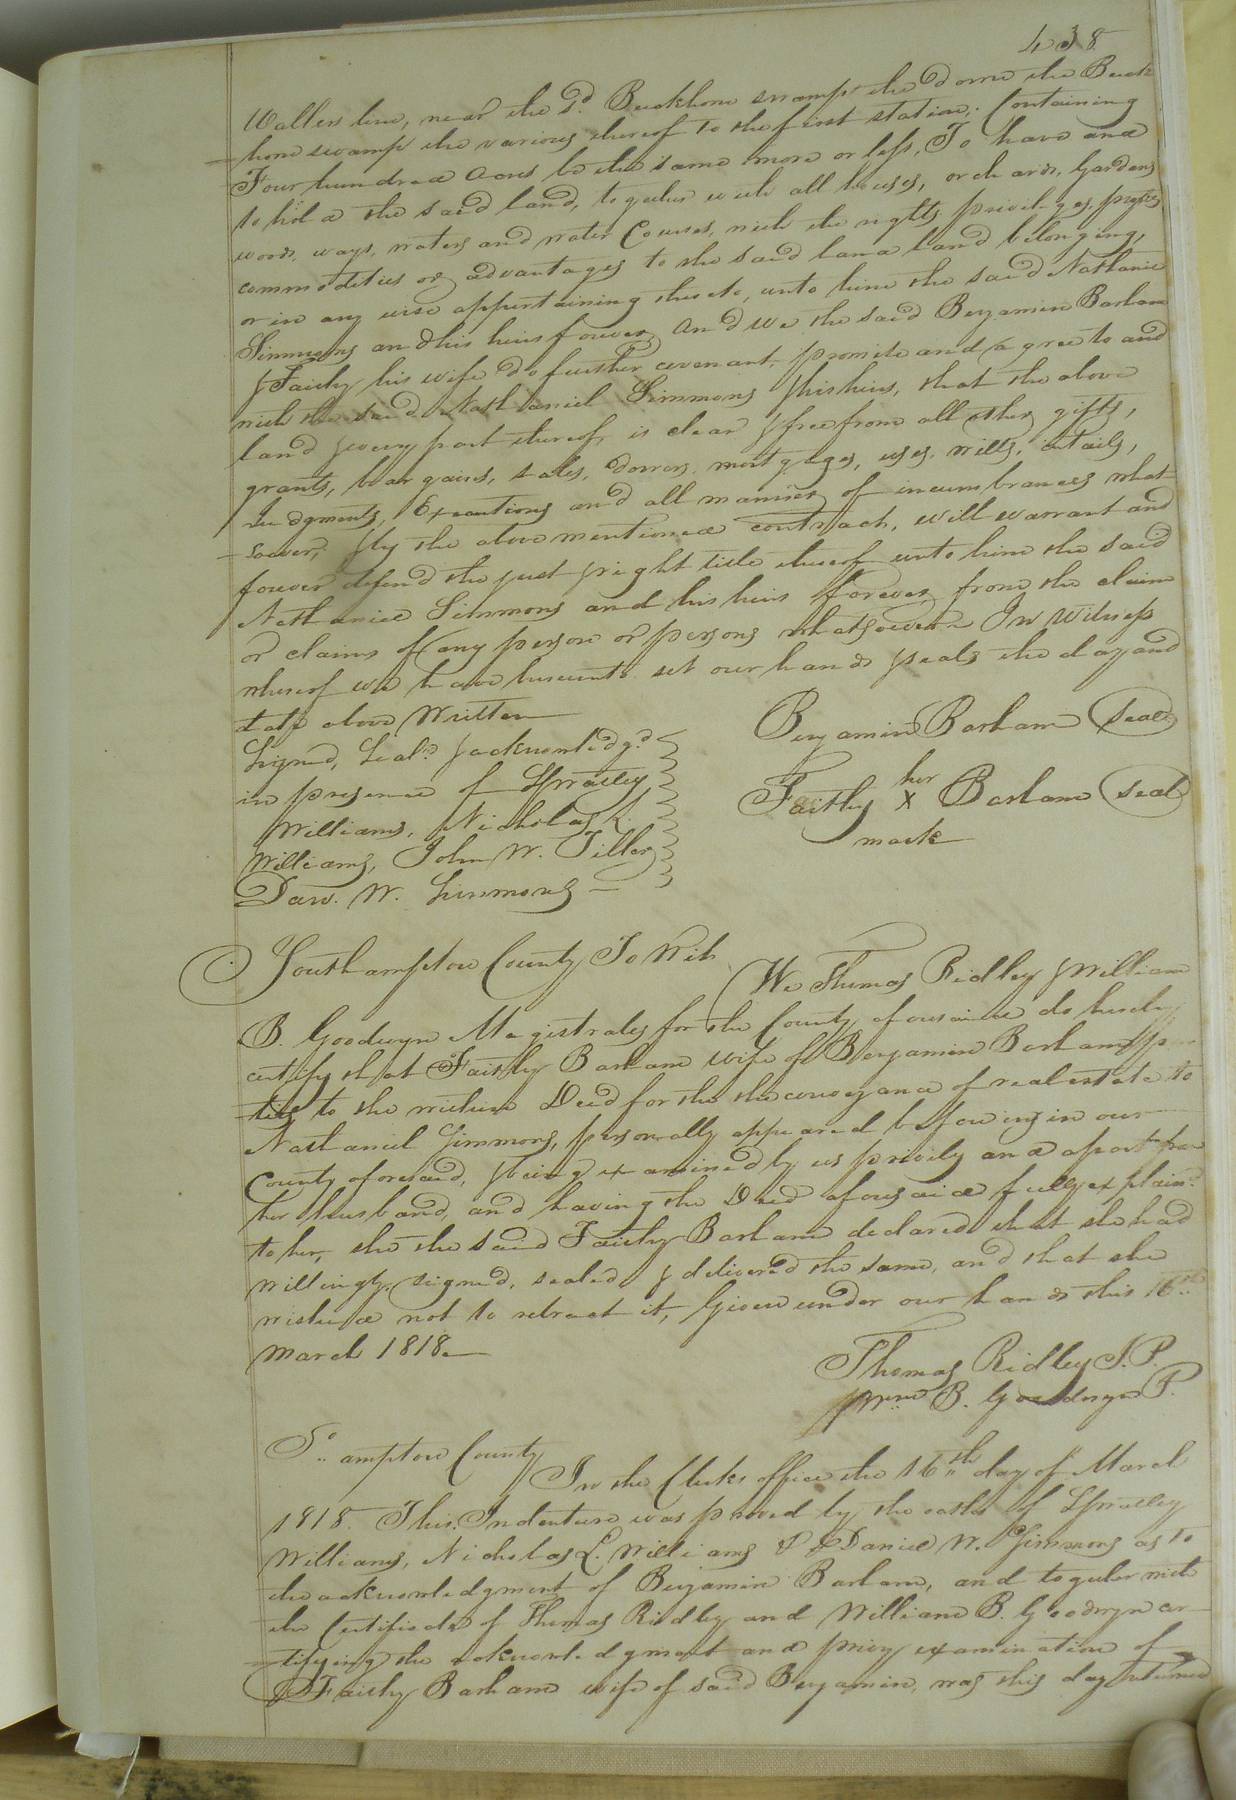 438
Wallers line, near the sd. Buckhorn swamp the down the Buck
-horn swamp the various thereof to the first station; Containing
Four hundred Acres be the same more or less, To have and
to hold the said land, together with all houses, orchards, Gardens
woods, ways, waters and water Courses, with the rights priviliges, profits
commodities or advantages to the said land land belonging,
or in any wise appertaining thereto, unto him the said Nathaniel
Simmons and his heirs forever, And we the said Benjamin Barham
& Faithy his wife do further covenant, promise and agree to and
with the said Nathaniel Simmons & his heirs, that the above
land & every part thereof, is clear & free from all other gifts,
grants, bargains, sales, dowers, mortgages, uses, wills, intails,
Judgments, Executions and all manner of incumbrances what
-soever, & by the above mentioned contract, will warrant and
forever defend the just & right title thereof unto him the said
Nathaniel Simmons and his heirs forever from the claim
or claims of any person or persons whatsoever In Witness
whereof we have hereunto set our hands & seals the day and
date above Written
Signed, Seald. & acknowledgd.
in presence of Spratley
Williams, Nicholas L.
Williams, John W. Tiller
Dan. W. Simmons
Benjamin Barham Seal
her
Faithy X Barham Seal
mark
Southampton County To Wit
We Thomas Ridley & William
B. Goodwyn Magistrates for the County aforesaid do hereby
certify that Faithy Barham wife of Benjamin Barham par
-ties to the within Deed for the the conveyance of real estate to
Nathaniel Simmons, personally appeared before us in our
County aforesaid, & being examined by us privily and apart from
her husband, and having the Deed aforesaid fully explaind.
to her, she the said Faithy Barham declared that she had
willingly signed, sealed & delivered the same, and that she
wished not to retract it, Given under our hands this 16th..
March 1818.
Thomas Ridley J.P.
Wm. B. Goodwyn P.
So.. ampton County
In the Clerks office the 16th day of March
1818. This Indenture was proved by the oaths of Spratley
Williams, Nicholas L. Williams & Daniel W. Simmons as to
the acknowledgment of Benjamin Barham, and together with
the Certificate of Thomas Ridley and William B. Goodwyn cer-
-tifying the acknowledgment and privy examination of
Faithy Barham wife of said Benjamin, was this day returned